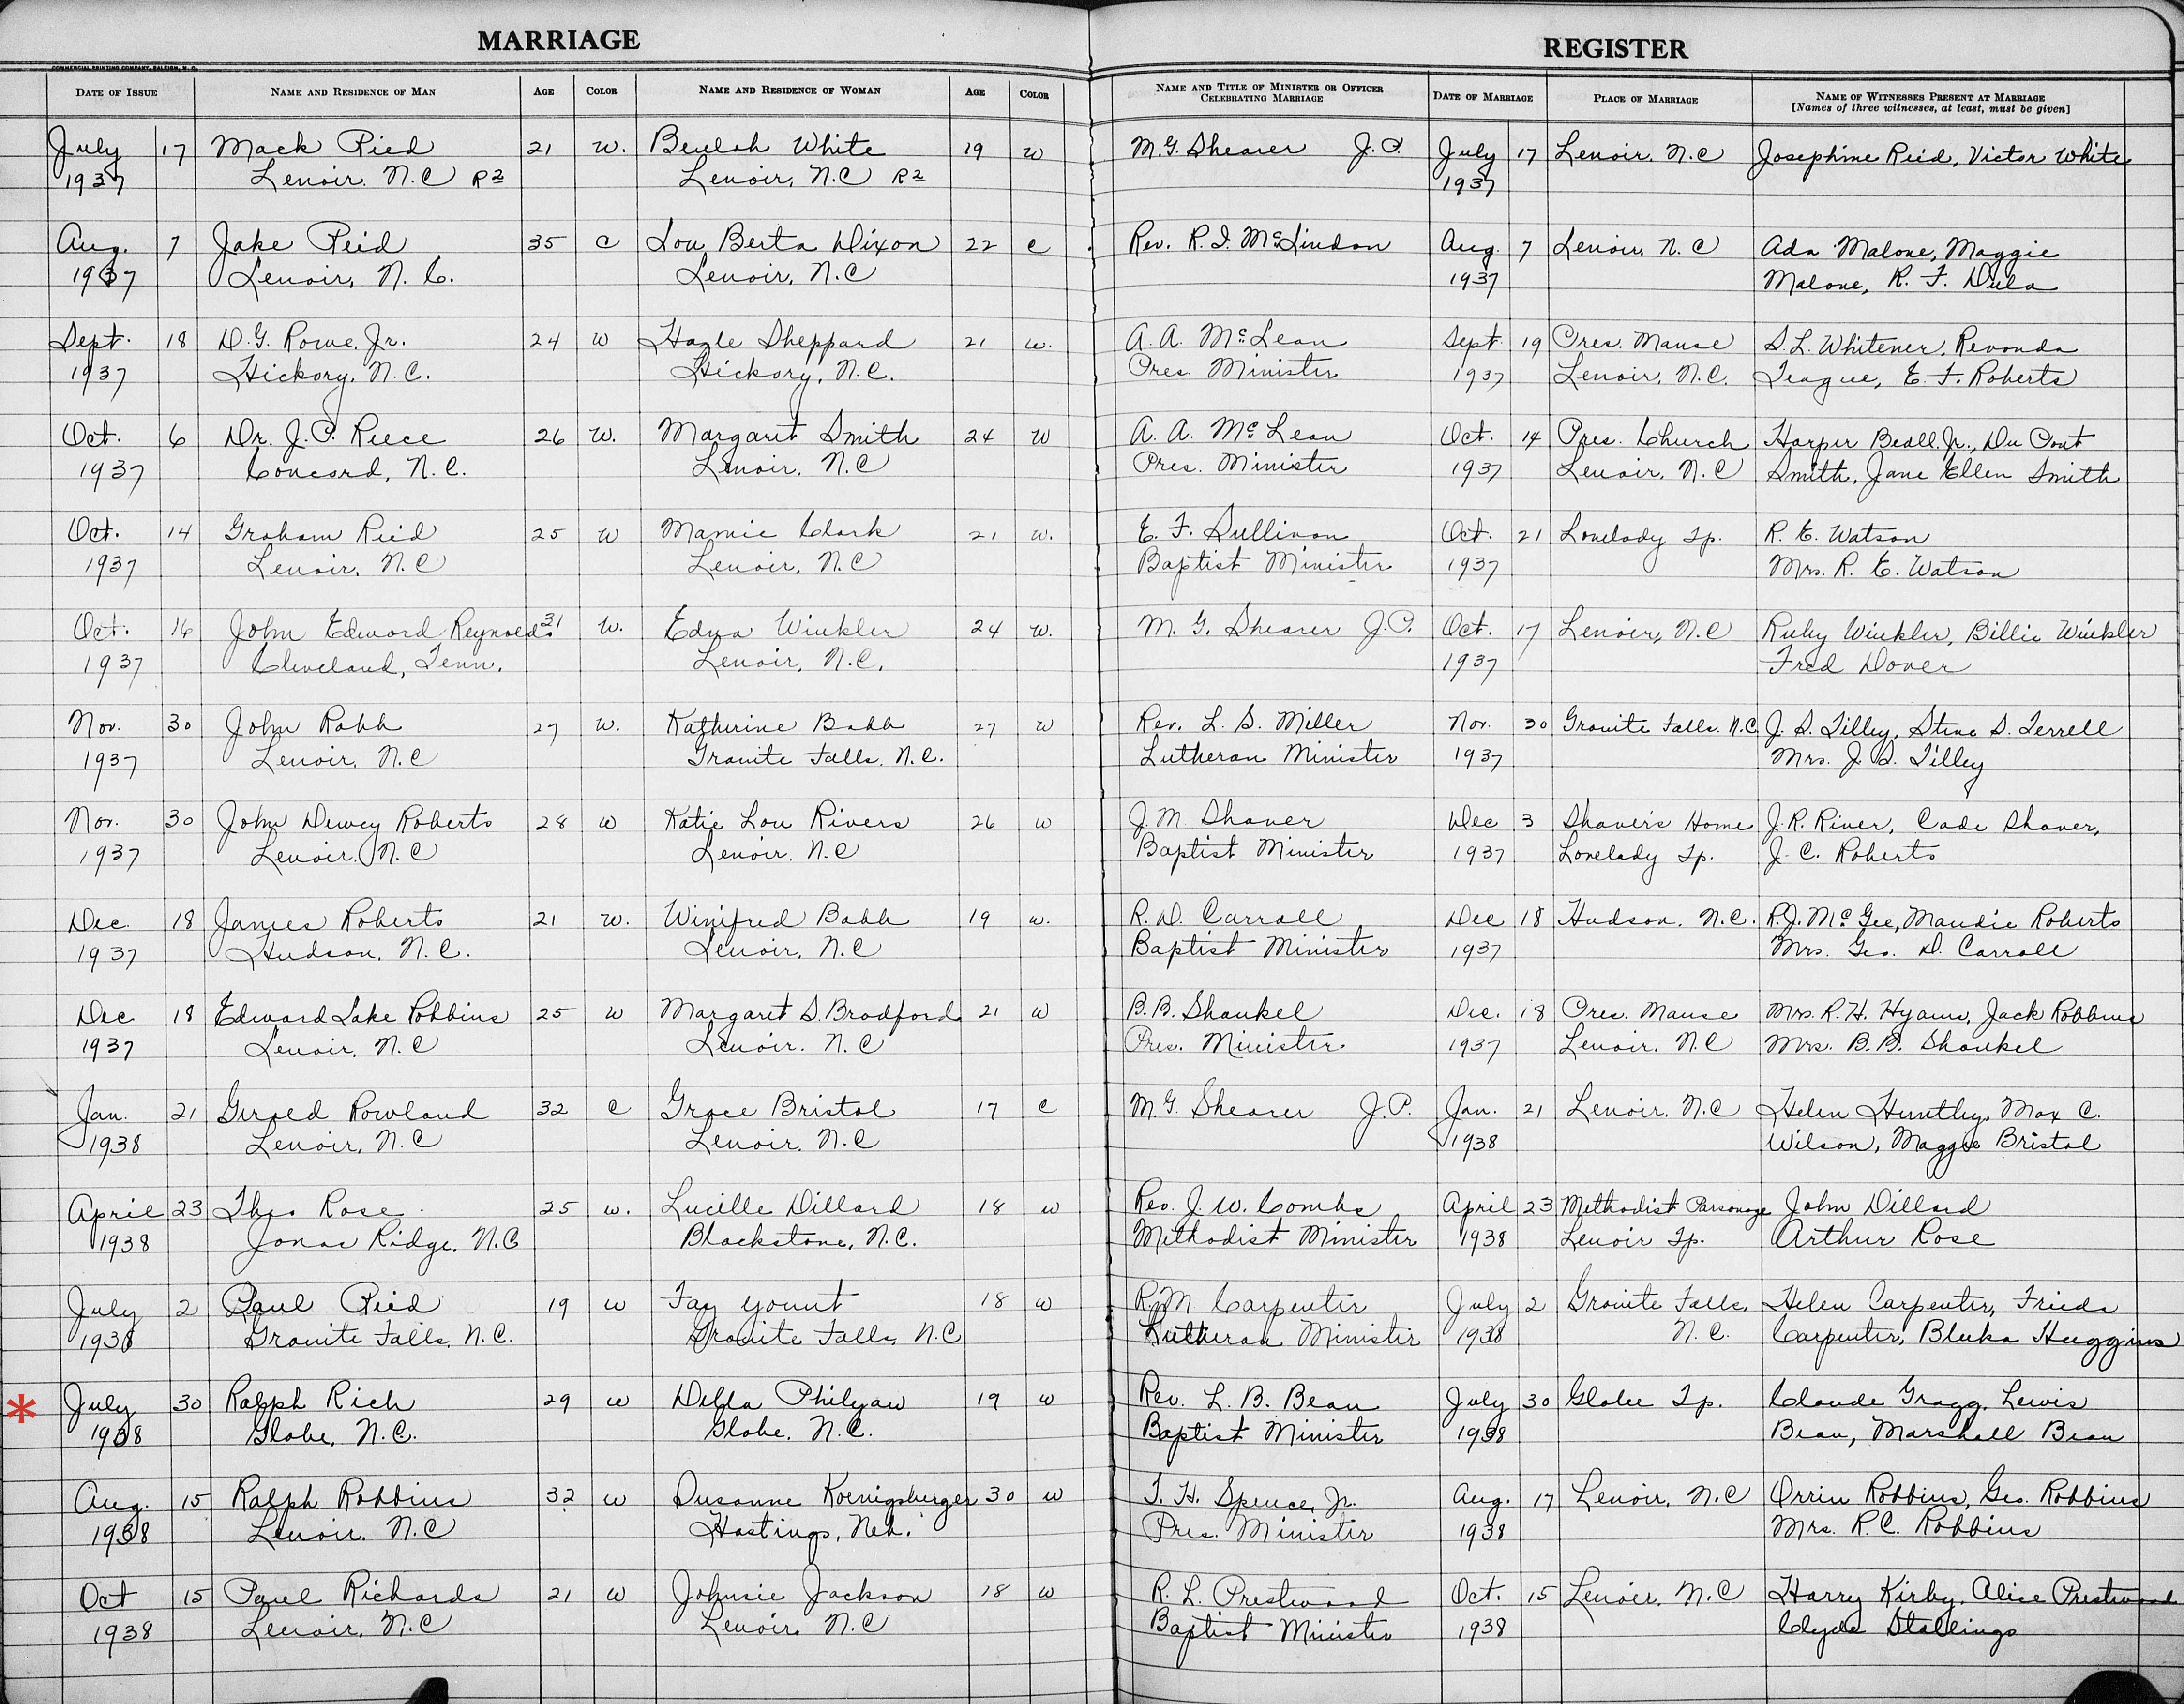 MARRIAGE REGISTER
COMMERCIAL PRINTING COMPANY, RALEIGH, N. C.
DATE OF ISSUE NAME AND RESIDENCE OF MAN AGE COLOR NAME AND RESIDENCE OF WOMAN AGE COLOR NAME AND TITLE OF MINISTER OR OFFICER CELEBRATING MARRIAGE DATE OF MARRIAGE PLACE OF MARRIAGE NAME OF WITNESSES PRESENT AT MARRIAGE
[Names of three witnesses, at least, must be given]
July 17 Mack Reid 21 W. Beulah White 19 W M.G. Shearer J.P. July 17 Lenoir, N.C Josephine Reid, Victor White
1937 Lenoir, N.C R2 Lenoir, N.C R2 1937
Aug. 7 Jake Reid 35 C Lou Berta Dixon 22 C Rev. R.I. McLindon Aug 7 Lenoir, N.C Ada Malone, Maggie
1937 Lenoir, N.C. Lenoir, N.C 1937 Malone, R. F. Dula
Sept. 18 D.G. Rowe, Jr. 24 W Hazle Sheppard 21 W. A. A. McLean Sept. 19 Pres. Manse S.L. Whitener, Revonda
1937 Hickory, N.C. Hickory, N.C. Pres. Minister 1937 Lenoir, N.C. Teague, E. F. Roberts
Oct. 6 Dr. J.P. Reece 26 W. Margaret Smith 24 W A. A. McLean Oct. 14 Pres. Church Harper Beall, Jr., Du Pont
1937 Concord, N.C. Lenoir, N.C Pres. Minister 1937 Lenoir, N.C Smith, Jane Ellen Smith
Oct. 14 Graham Reid 25 W Mamie Clark 21 W. E. F. Sullivan Oct. 21 Lovelady Tp. R. E. Watson
1937 Lenoir, N.C Lenoir, N.C Baptist Minister 1937 Mrs. R. E. Watson
Oct. 16 John Edward Reynolds 31 W. Edna Winkler 24 W. M. G. Shearer J.P. Oct. 17 Lenoir, N.C Ruby Winkler, Billie Winkler
1937 Cleveland, Tenn. Lenoir, N.C. 1937 Fred Dover
Nov. 30 John Robb 27 W. Katherine Babb 27 W Rev. L. S. Miller Nov. 30 Granite Falls, N.C. J. S. Tilley, Steve S. Terrell
1937 Lenoir, N.C Granite Falls, N.C. Lutheran Minister 1937 Mrs. J. S. Tilley
Nov. 30 John Dewey Roberts 28 W Katie Lou Rivers 26 W J. M. Shaver Dec 3 Shaver's Home J.R. River, Cade Shaver,
1937 Lenoir, N.C Lenoir, N.C Baptist Minister 1937 Lovelady Tp. J. C. Roberts
Dec. 18 James Roberts 21 W. Winifred Babb 19 W. R. D. Carroll Dec 18 Hudson, N.C. R.J. McGee, Maudie Roberts
1937 Hudson, N.C. Lenoir, N.C Baptist Minister 1937 Mrs. Geo. D. Carroll
Dec 18 Edward Lake Robbins 25 W Margaret S. Bradford 21 W B.B. Shankel Dec. 18 Pres. Manse Mrs. R.H. Hyams, Jack Robbins
1937 Lenoir, N.C Lenoir, N.C Pres. Minister 1937 Lenoir, N.C Mrs. B.B. Shankel
Jan. 21 Gerald Rowland 32 C Grace Bristol 17 C M.G. Shearer J.P. Jan. 21 Lenoir, N.C Helen Huntley, Max C.
1938 Lenoir, N.C Lenoir, N.C 1938 Wilson, Maggie Bristol
April 23 Theo Rose 25 W. Lucille Dillard 18 W Rev. J. W. Combs April 23 Methodist Parsonage John Dillard
1938 Jonas Ridge, N.C Blackstone, N.C. Methodist Minister 1938 Lenoir Tp. Arthur Rose
July 2 Paul Reid 19 W Fay Yount 18 W R.M Carpenter July 2 Granite Falls, Helen Carpenter, Frieda
1938 Granite Falls, N.C. Granite Falls, N.C Lutheran Minister 1938 N.C. Carpenter, Bluka Huggins
* July 30 Ralph Rich 29 W Della Philyaw 19 W Rev. L. B. Bean July 30 Globe Tp. Claude Gragg, Lewis
1938 Globe, N.C. Globe, N.C. Baptist Minister 1938 Bean, Marshall Bean
Aug. 15 Ralph Robbins 32 W Susanne Koenigsberger 30 W T. H. Spence, Jr. Aug. 17 Lenoir, N.C Orrin Robbins, Geo. Robbins
1938 Lenoir, N.C Hastings, Neb. Pres. Minister 1938 Mrs. R.C. Robbins
Oct 15 Paul Richards 21 W Johnsie Jackson 18 W R. L. Prestwood Oct. 15 Lenoir, N.C Harry Kirby, Alice Prestwood
1938 Lenoir, N.C Lenoir, N.C Baptist Minister 1938 Clyde Stallings